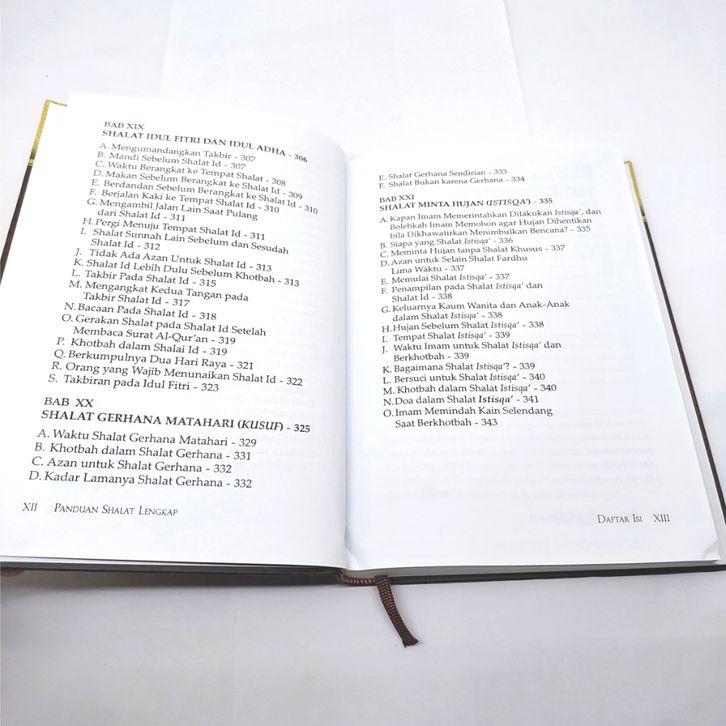 BAB XIX
SHALAT IDUL FITRI DAN IDUL ADHA - 306
A. Mengumandangkan Takbir - 307
B. Mandi Sebelum Shalat Id - 307
C. Waktu Berangkat ke Tempat Shalat - 308
D. Makan Sebelum Berangkat ke Shalat Id - 309
E. Berdandan Sebelum Berangkat ke Shalat Id - 310
F. Berjalan Kaki ke Tempat Shalat Id - 310
G. Mengambil Jalan Lain Saat Pulang
dari Shalat Id - 311
H. Pergi Menuju Tempat Shalat Id - 311
I. Shalat Sunnah Lain Sebelum dan Sesudah
Shalat Id - 312
J. Tidak Ada Azan Untuk Shalat Id - 313
K. Shalat Id Lebih Dulu Sebelum Khotbah - 313
L. Takbir Pada Shalat Id - 315
M. Mengangkat Kedua Tangan pada
Takbir Shalat Id - 317
N. Bacaan Pada Shalat Id - 318
O. Gerakan Shalat pada Shalat Id Setelah
Membaca Surat Al-Qur'an - 319
P. Khotbah dalam Shalai Id - 319
Q. Berkumpulnya Dua Hari Raya - 321
R. Orang yang Wajib Menunaikan Shalat Id - 322
S. Takbiran pada Idul Fitri - 323
BAB XX
SHALAT GERHANA MATAHARI (KUSUF) - 325
A. Waktu Shalat Gerhana Matahari - 329
B. Khotbah dalam Shalat Gerhana - 331
C. Azan untuk Shalat Gerhana - 332
D. Kadar Lamanya Shalat Gerhana - 332
XII PANDUAN SHALAT LENGKAP
E. Shalat Gerhana Sendirian - 333
F. Shalat Bukan karena Gerhana - 334
BAB XXI
SHALAT MINTA HUJAN (ISTISQA') - 335
A. Kapan Imam Memerintahkan Dilakukan Istisqa', dan
Bolehkah Imam Memohon agar Hujan Dihentikan
bila Dikhawatirkan Menimbulkan Bencana? - 335
B. Siapa yang Shalat Istisqa' - 336
C. Meminta Hujan tanpa Shalat Khusus - 337
D. Azan untuk Selain Shalat Fardhu
Lima Waktu - 337
E. Memulai Shalat Istisqa' - 337
F. Penampilan pada Shalat Istisqa' dan
Shalat Id - 338
G. Keluarnya Kaum Wanita dan Anak-Anak
dalam Shalat Istisqa' - 338
H. Hujan Sebelum Shalat Istisqa' - 338
I. Tempat Shalat Istisqa' - 339
J. Waktu Imam untuk Shalat Istisqa' dan
Berkhotbah - 339
K. Bagaimana Shalat Istisqa'? - 339
L. Bersuci untuk Shalat Istisqa' - 340
M. Khotbah dalam Shalat Istisqa' - 340
N. Doa dalam Shalat Istisqa' - 341
O. Imam Memindah Kain Selendang
Saat Berkhotbah - 343
DAFTAR ISI XIII